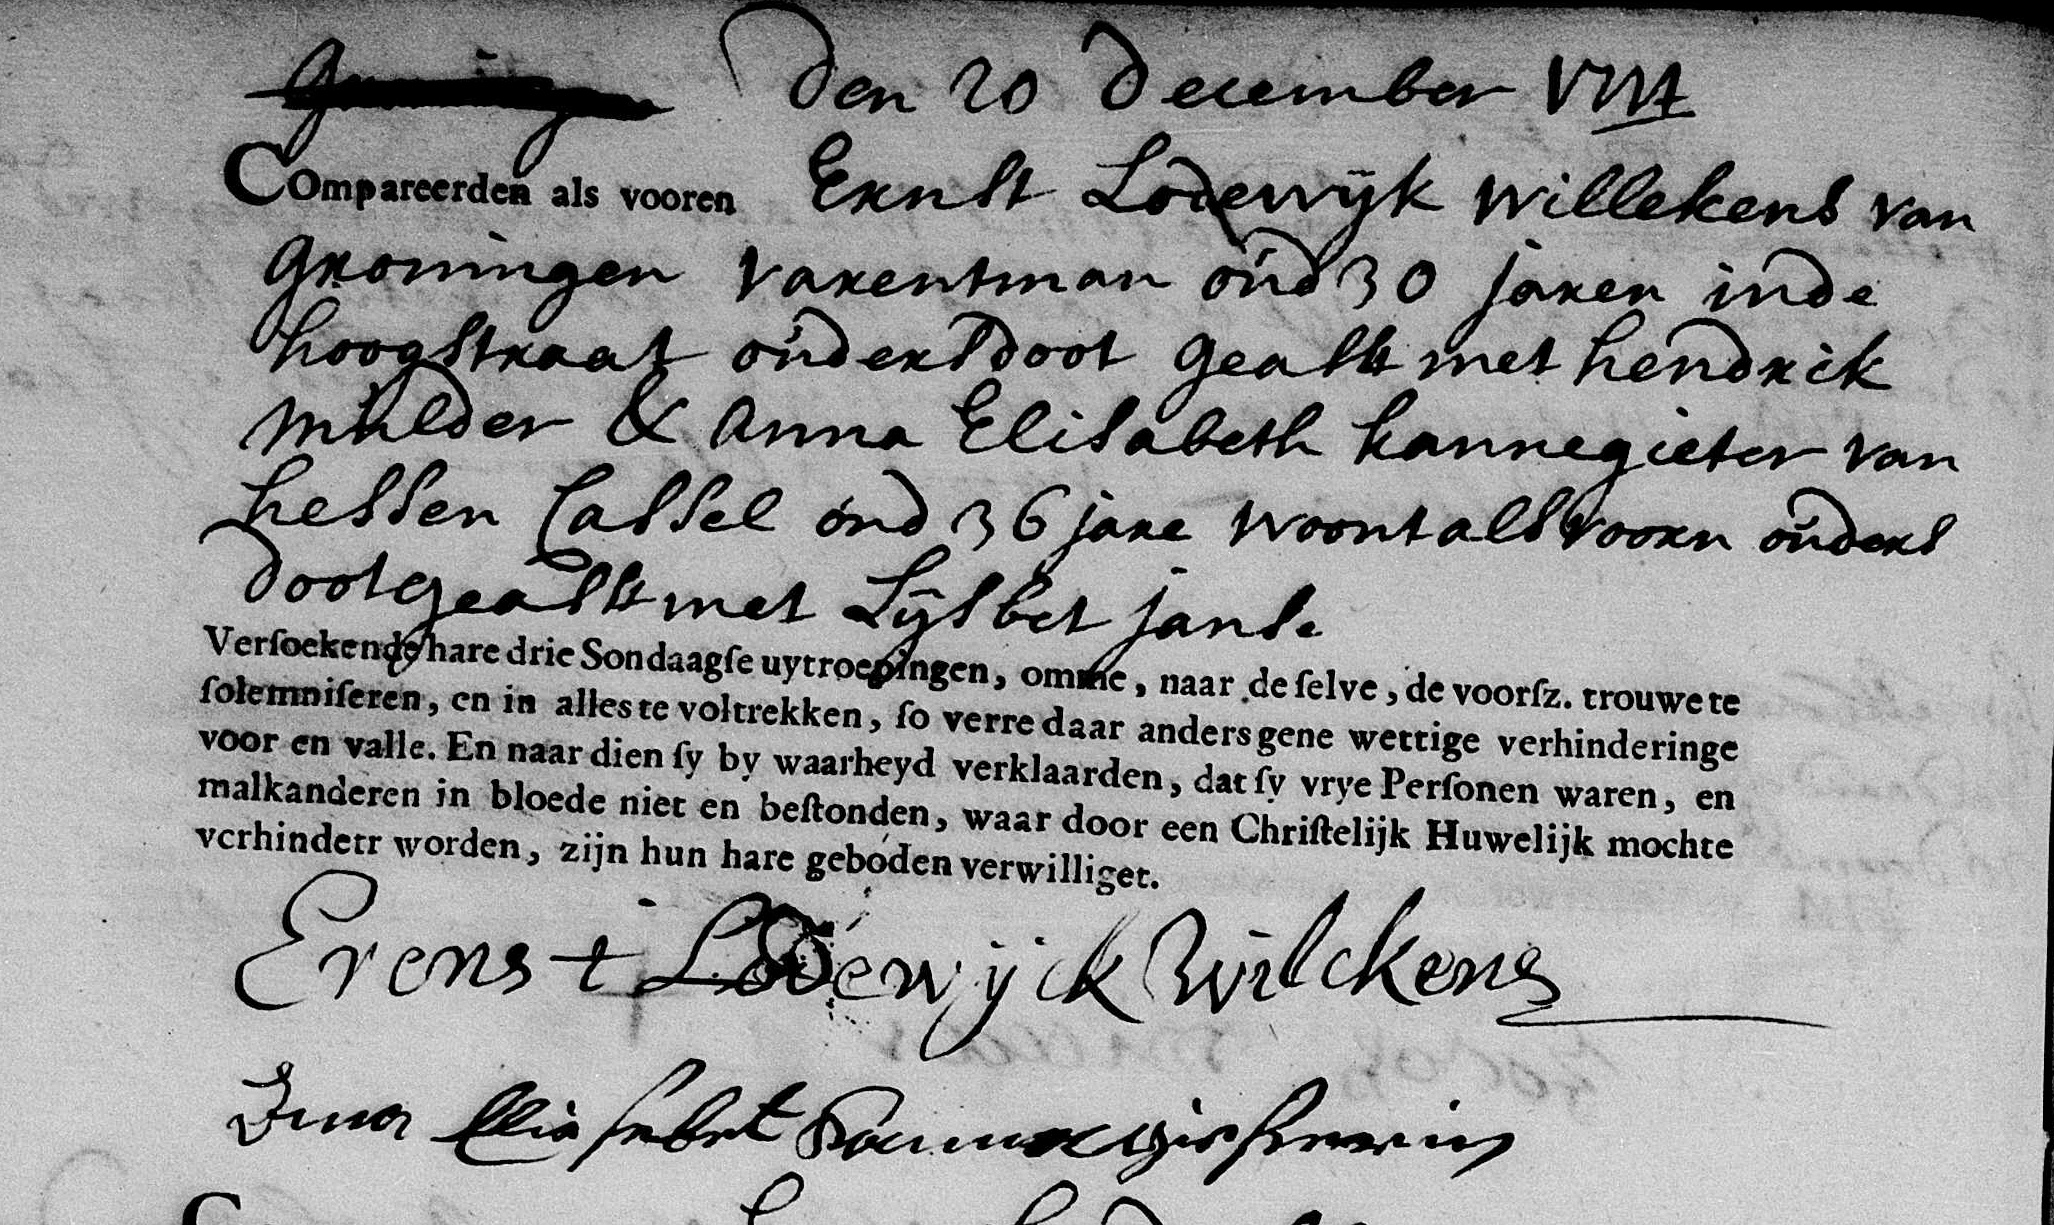 den 20 december
Compareerden als vooren Ernst Lodewijk Willekens van
Groningen varentman oud 30 jaren inde
hoogstraat ouders doot geastt met hendrick
mulder & Anna Elisabeth kannegieter van
hessen Cassel oud 36 jare woont als voorn ouders
doot geastt met Lijsbet jans.
Verſoekende hare drie Sondaagſe uytroepingen, omme, naar de ſelve, de voorſz. trouwe te
ſolemniſeren, en in alles te voltrekken, ſo verre daar anders gene wettige verhinderinge
voor en valle. En naar dien ſy by waarheyd verklaarden, dat ſy vrye Perſonen waren, en
malkanderen in bloede niet en beſtonden, waar door een Chriſtelijk Huwelijk mochte
verhindert worden, zijn hun hare geboden verwilliget.
Erenst Lodewijck Wilckens
Anna Elisabet